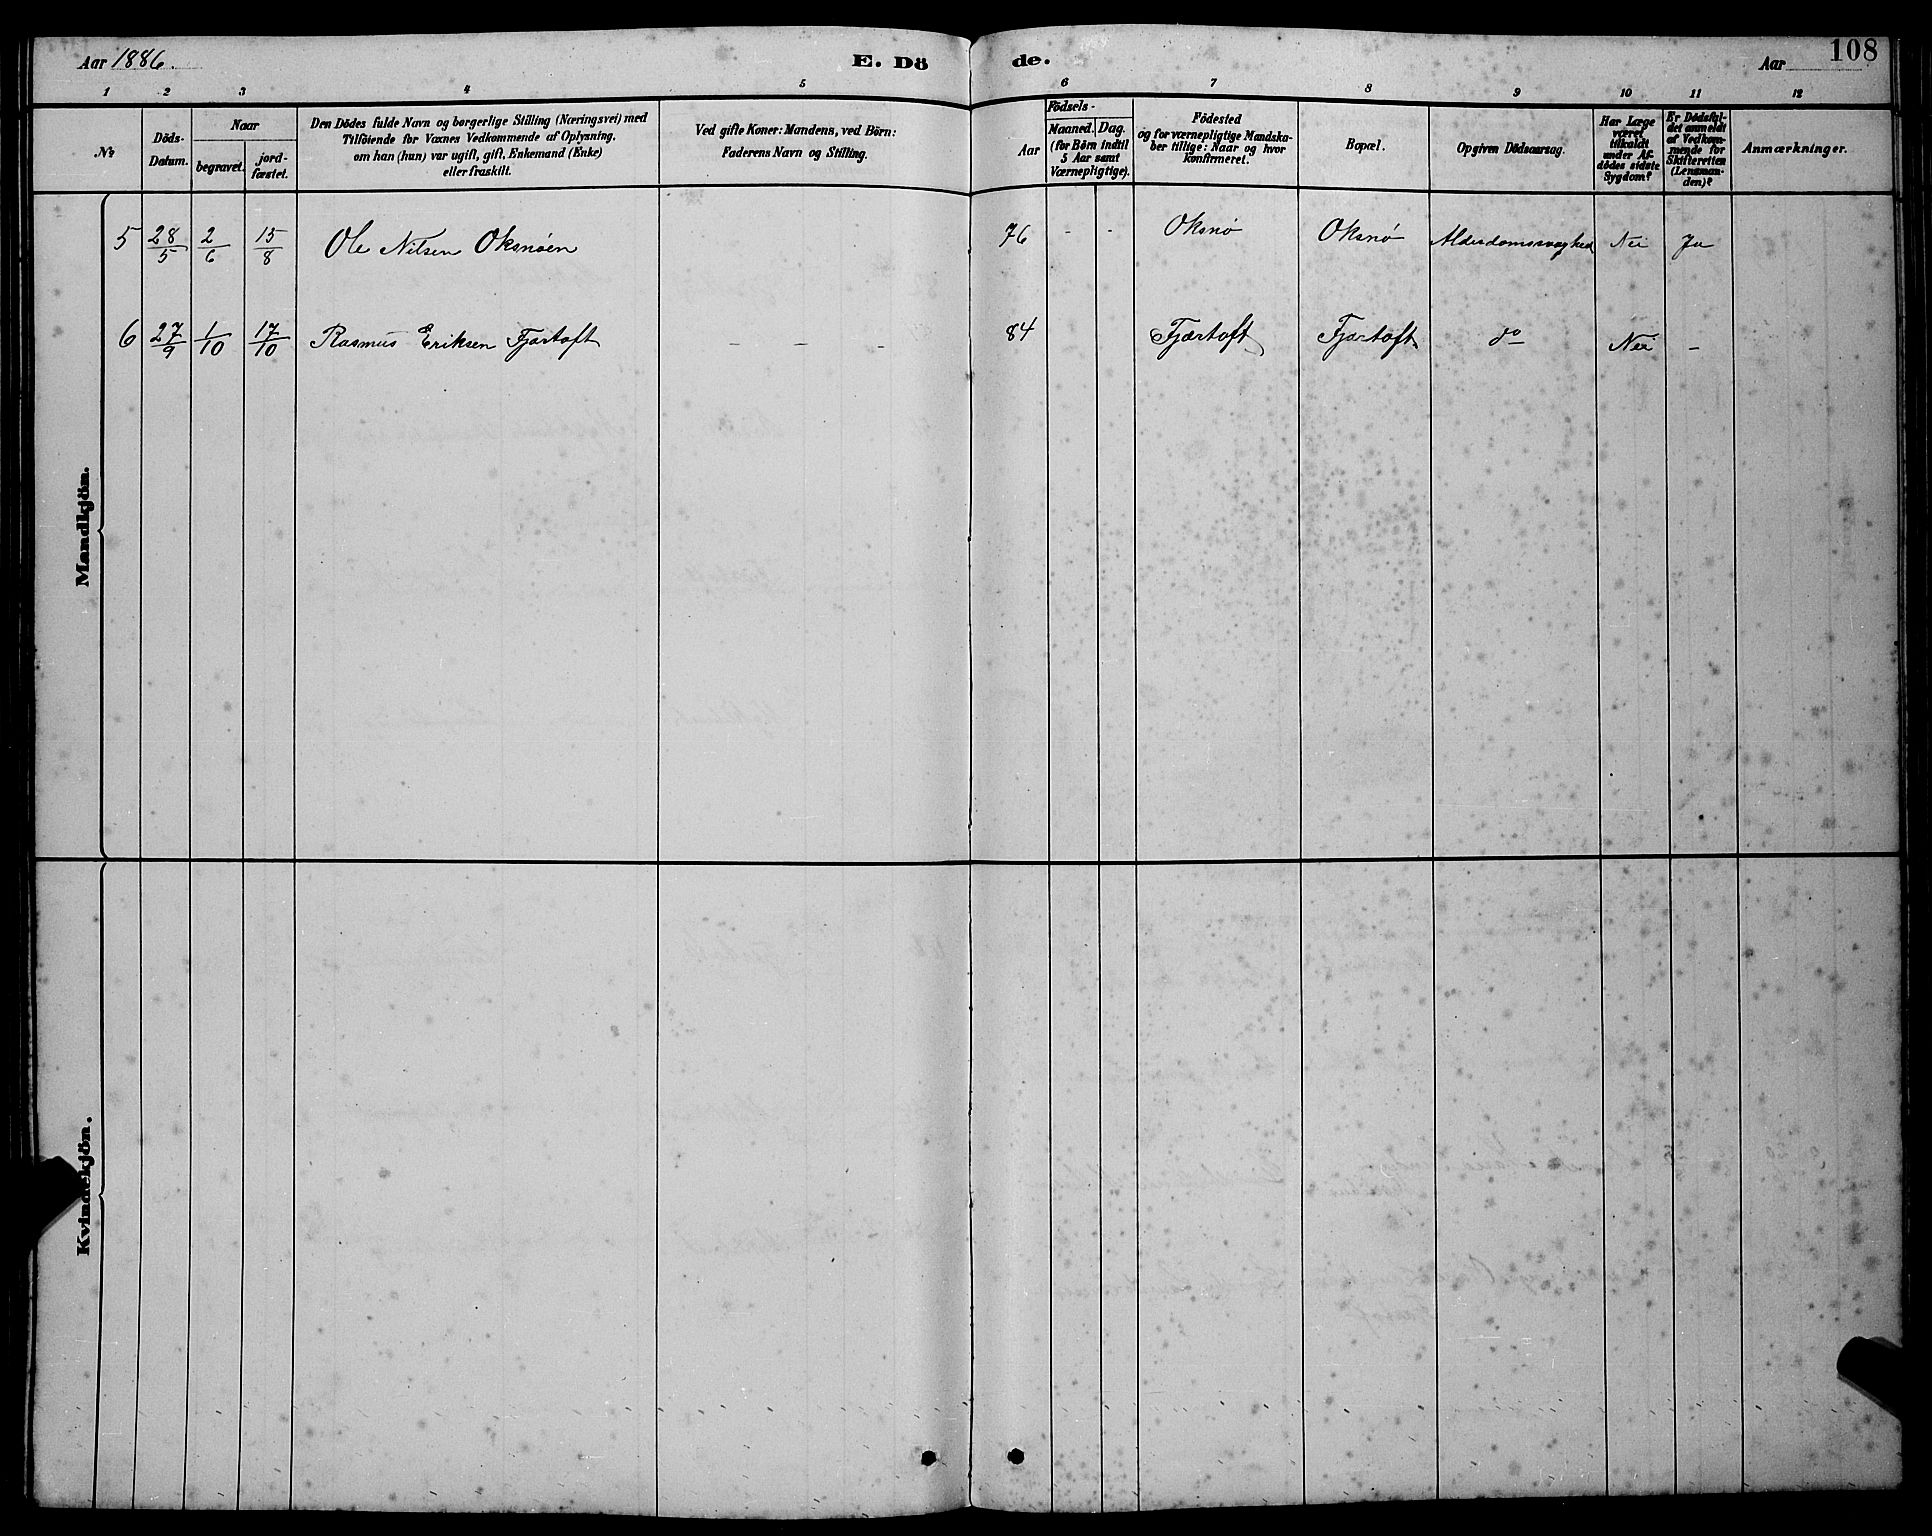 Aar 1886.
E. Dö
de.
Aar
108
1 2 3 4 5 6 7 8 9 10 11 12
№
Döds-
Datum.
Naar
begravet.
jord-
fæstet.
Den Dödes fulde Navn og borgerlige Stilling (Næringsvei) med
Tilföiende for Voxnes Vedkommende af Oplysning,
om han (hun) var ugift, gift, Enkemand (Enke)
eller fraskilt.
Ved gifte Koner: Mandens, ved Börn:
Faderens Navn og Stilling.
Födsels-
Aar
Maaned.
Dag.
(for Börn indtil
5 Aar samt
Værnepligtige).
Födested
og for værnepligtige Mandska-
ber tillige: Naar og hvor
konfirmeret.
Bopæl.
Opgiven Dödsaarsag.
Har Læge
været
tilkaldt
under Af-
dödes sidste
Sygdom?
Er Dödsfal-
det anmeldt
af Vedkom-
mende for
Skifteretten
(Lensman-
den)?
Anmærkninger.
Mandkjön.
5 28/5 2/6 15/8 Ole Nilsen Oksnøen 76 - - Oksnø Oksnø Alderdomssvaghed Nei Ja
6 27/9 1/10 17/10 Rasmus Eriksen Fjærtoft - - - 84 Fjærtoft Fjærtoft do Nei -
Kvindekjön.